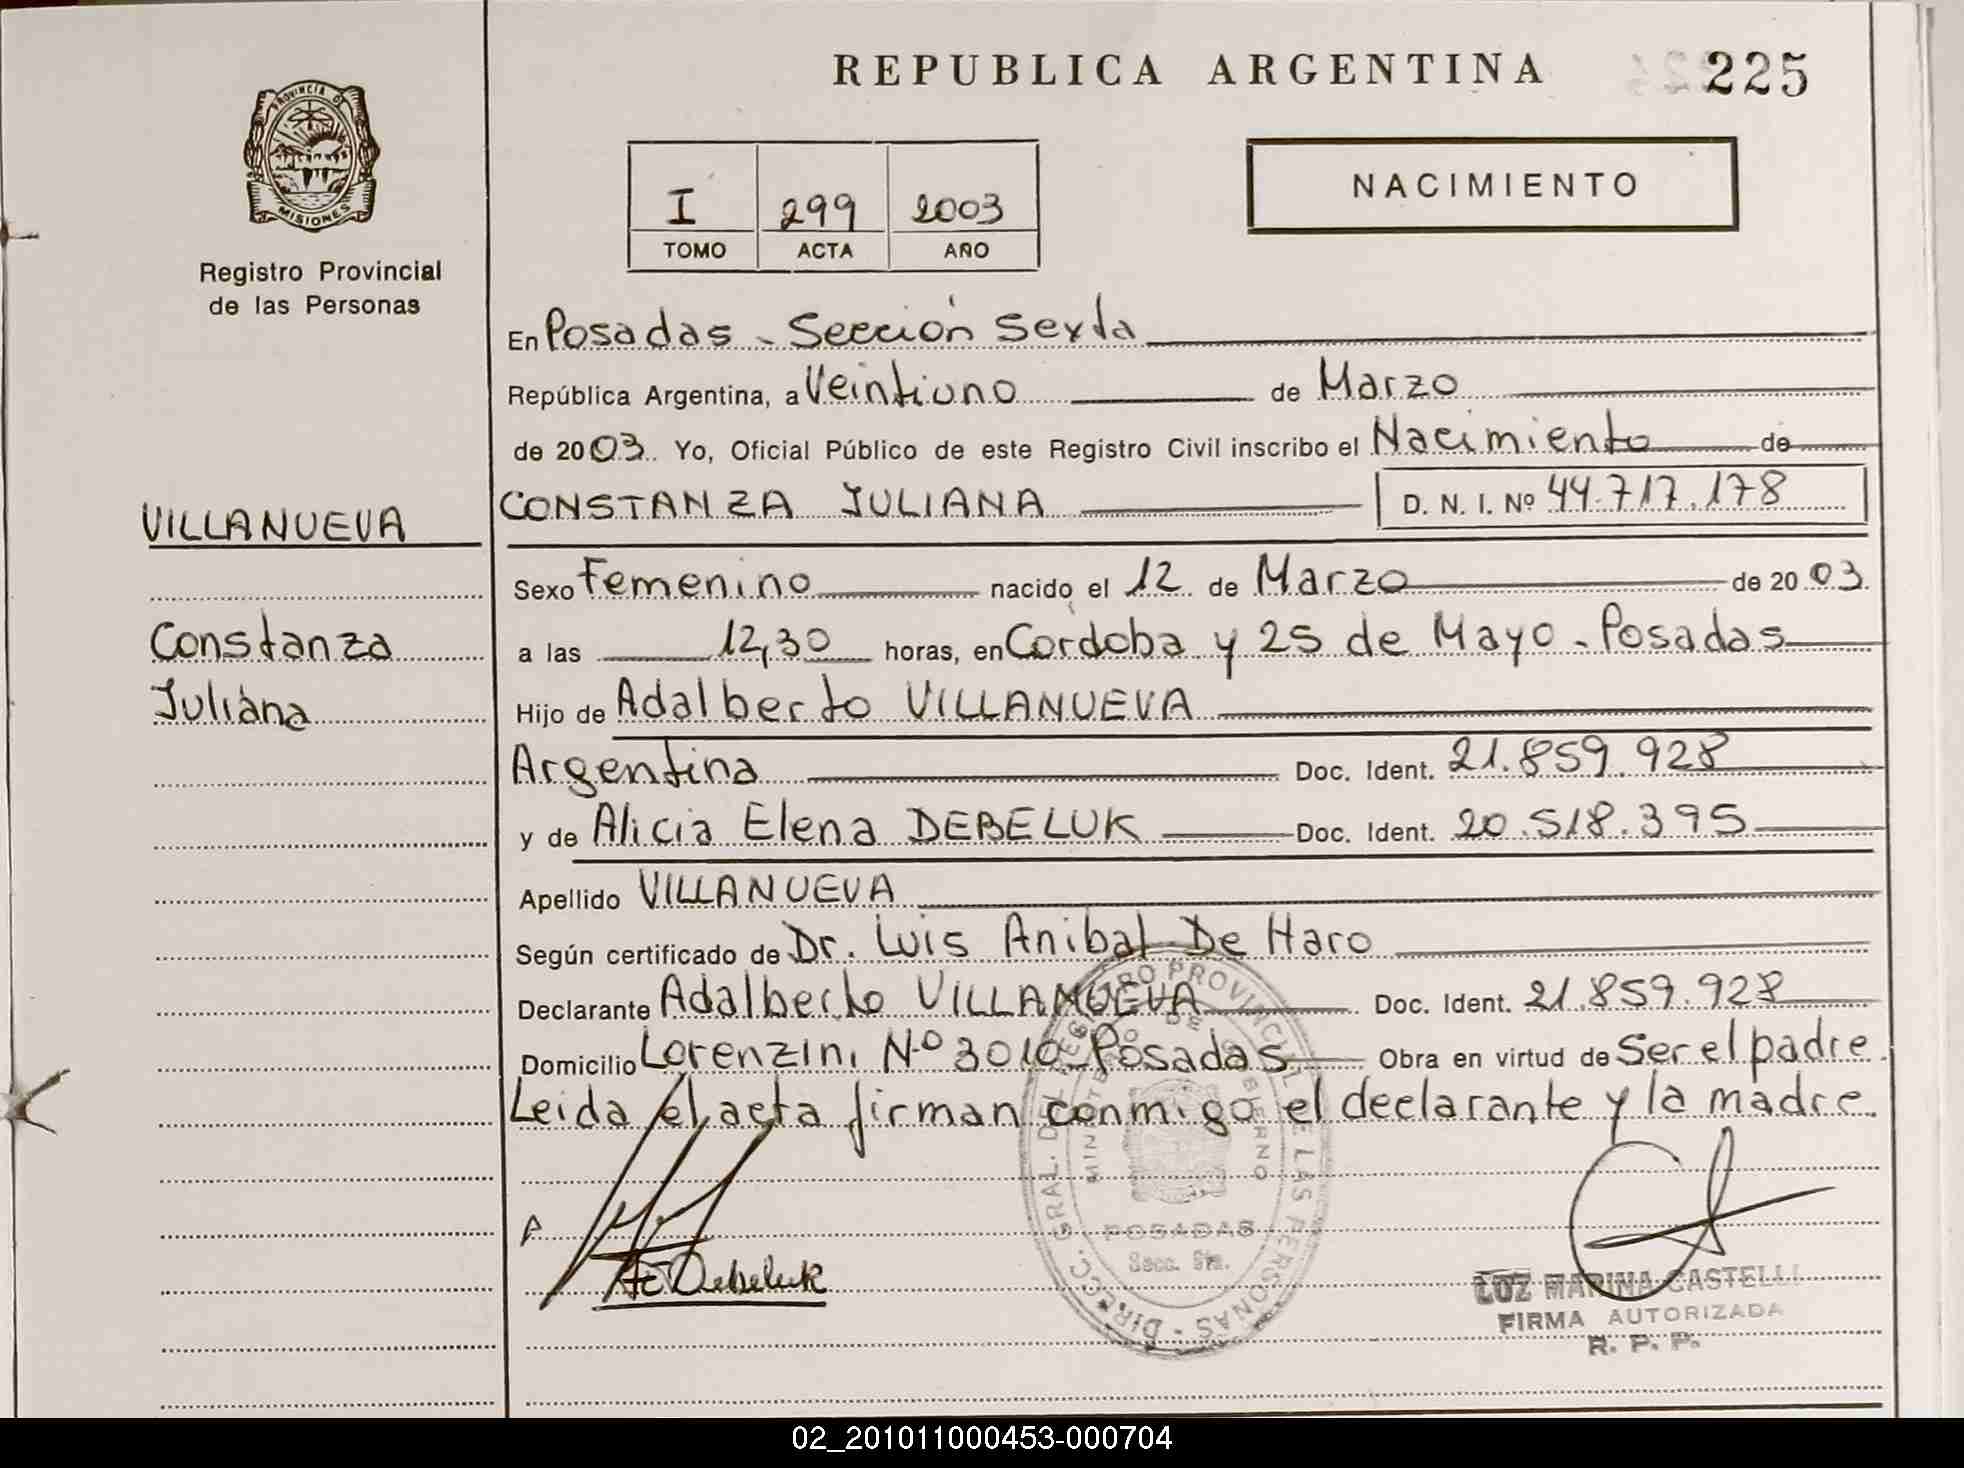 REPUBLICA ARGENTINA 225
PROVINCIA DE
MISIONES
Registro Provincial
de las Personas
I 299 2003
TOMO ACTA AÑO
NACIMIENTO
En Posadas - Sección Sexta
República Argentina, a Veintiuno de Marzo
de 2003. Yo, Oficial Público de este Registro Civil inscribo el Nacimiento de
VILLANUEVA
CONSTANZA JULIANA D. N. I. Nº 44.717.178
Sexo Femenino nacido el 12 de Marzo de 2003.
Constanza
a las 12,30 horas, en Cordoba y 25 de Mayo - Posadas
Juliana
Hijo de Adalberto VILLANUEVA
Argentina Doc. Ident. 21.859.928
y de Alicia Elena DEBELUK Doc. Ident. 20.518.395
Apellido VILLANUEVA
Según certificado de Dr. Luis Anibal De Haro
Declarante Adalberto VILLANUEVA Doc. Ident. 21.859.928
Domicilio Lorenzini Nº 3010 - Posadas Obra en virtud de Ser el padre.
Leida el acta firman conmigo el declarante y la madre.
AEDebeluk
DIRECC. GRAL. DEL REGISTRO PROVINCIAL DE LAS PERSONAS
MINISTERIO DE GOBIERNO
POSADAS
Secc. 6ta.
LUZ MARINA CASTELLI
FIRMA AUTORIZADA
R. P. P.
02_201011000453-000704